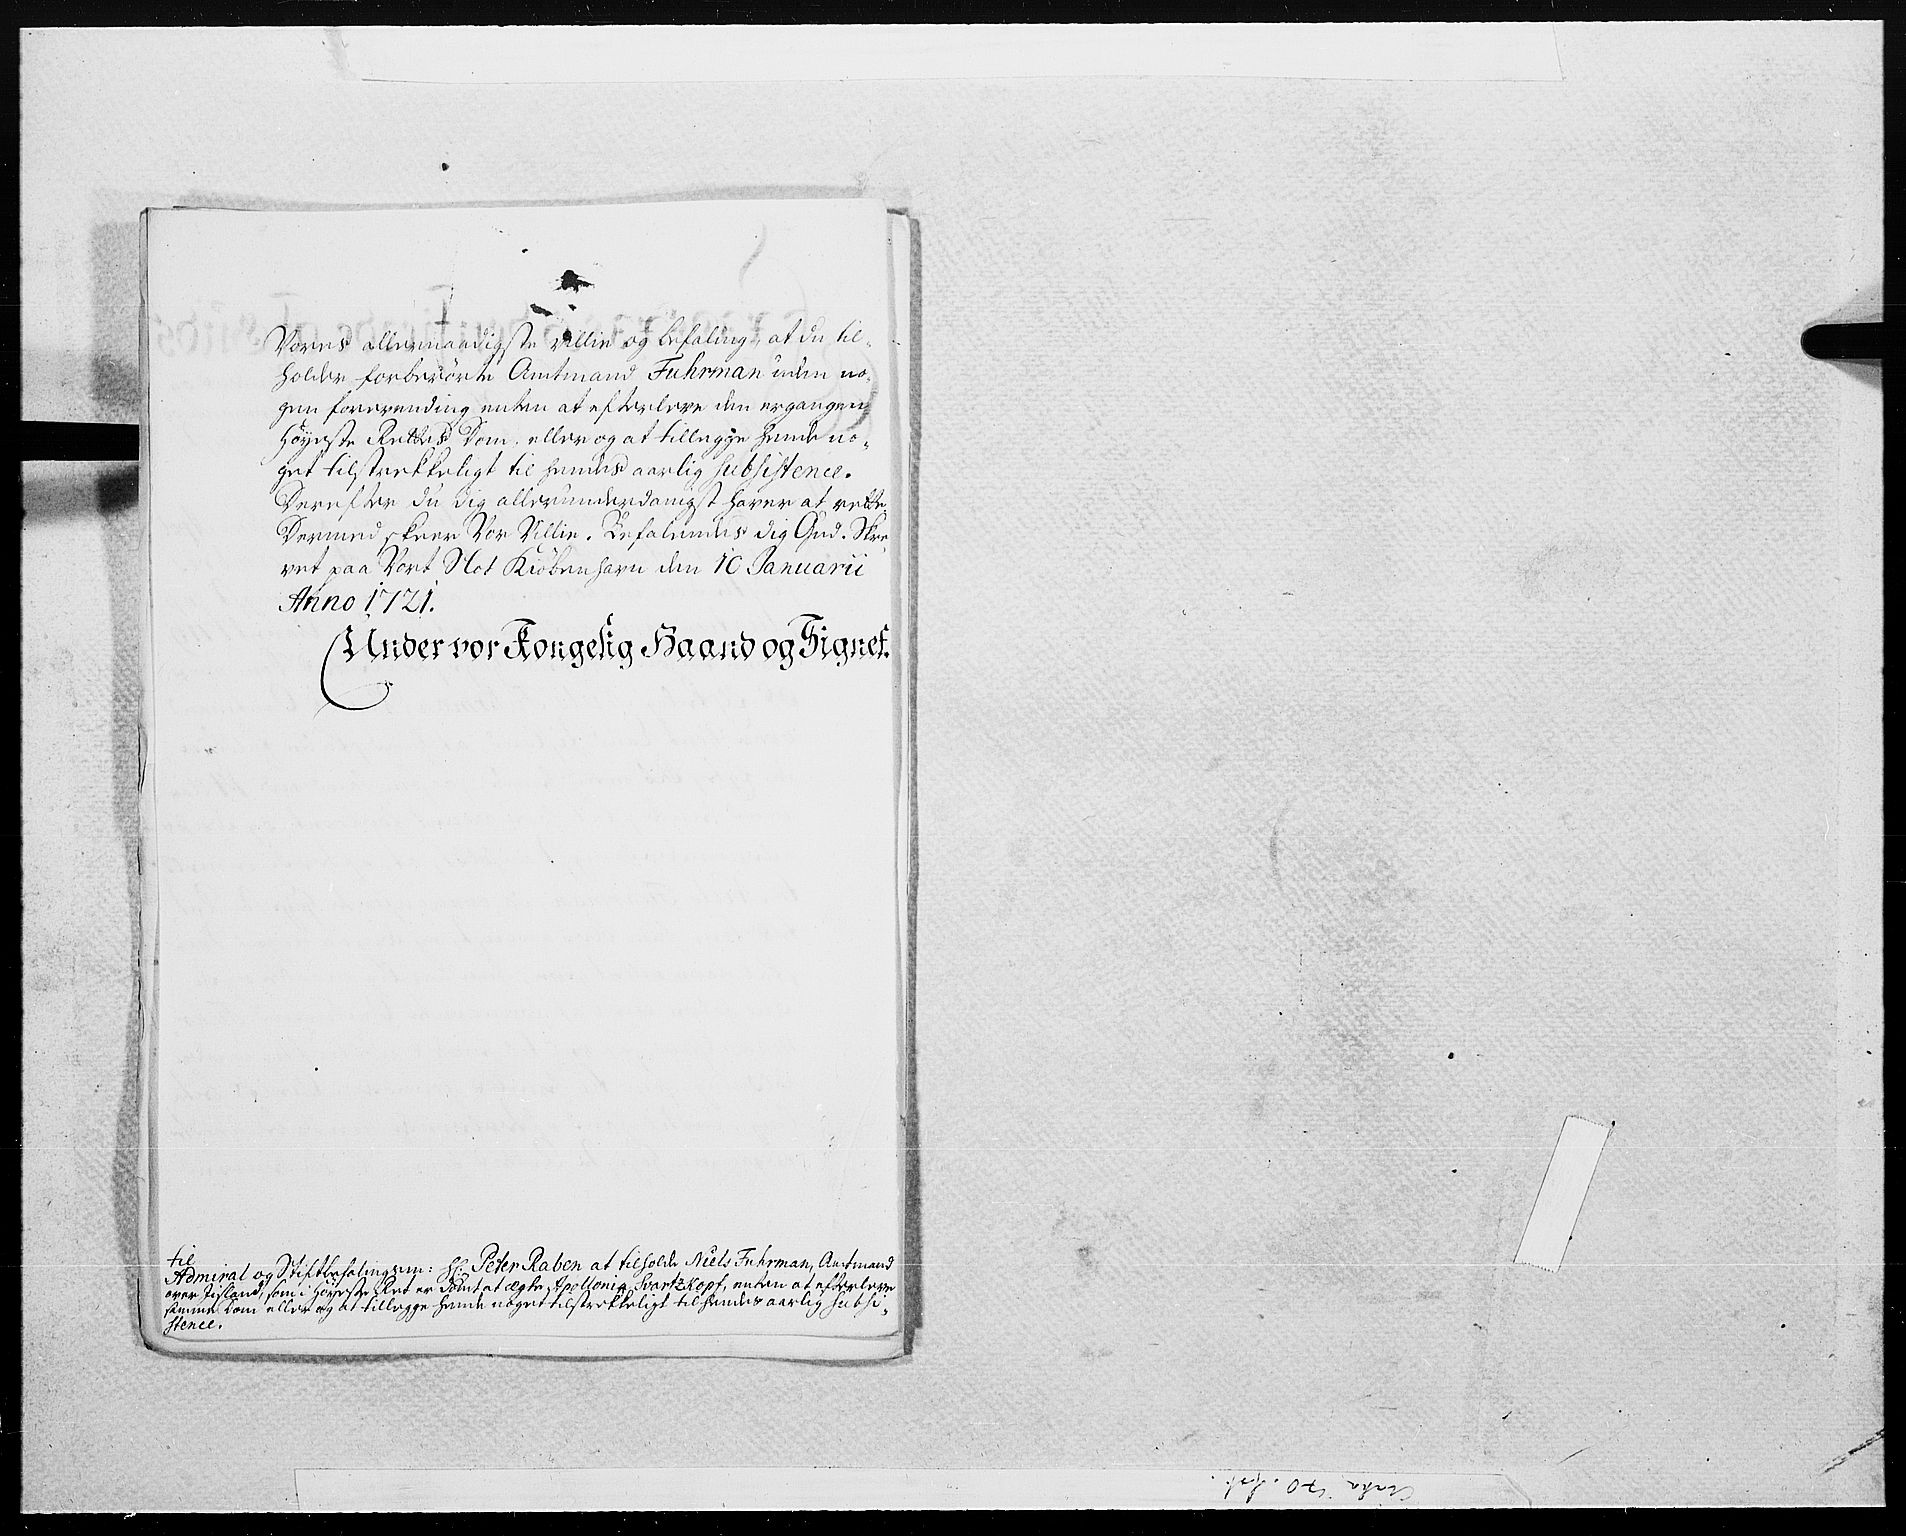 Vores allernaadigste villie og befaling, at du til-
holder forberørte Amtmand Fuhrman uden no-
gen forevending enten at efterleve den ergangen
Høyeste Rettes Dom, eller og at tillegge hende no-
get tilstrekkeligt til hendes aarlig subsistence.
Derefter du dig allerunderdanigst haver at rette
Dermed skeer Vor Villie. Befalendes dig Gud. Skre-
vet paa Vort Slot Kiøbenhavn den 10 Januarii
Anno 1721.
Under vor Kongelig Haand og Signet.
til
Admiral og Stiftbefalingsm: Hr: Peter Raben at tilholde Niels Fuhrman, Amtmand
over Iisland, som i Høyeste Ret er Dømt at ægte Apollonia Svartzkopf, enten at efterleve
samme Dom eller og at tillegge hende noget tilstrekkeligt til hendes aarlig subsi-
stence.